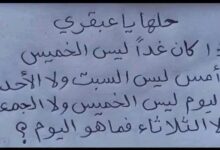 حلها يا عبقري
ذا كان غداً ليس الخميس
أمس ليس السبت ولا الأحد
اليوم ليس الخميس ولا الجمع
لا الثلاثاء فما هو اليوم ؟